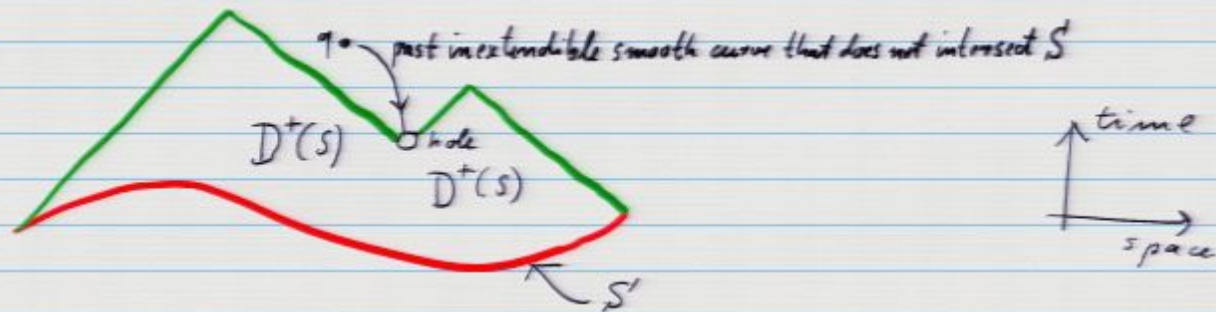 q past inextendible smooth curve that does not intersect S
time
D⁺(S) hole
D⁺(S)
space
S